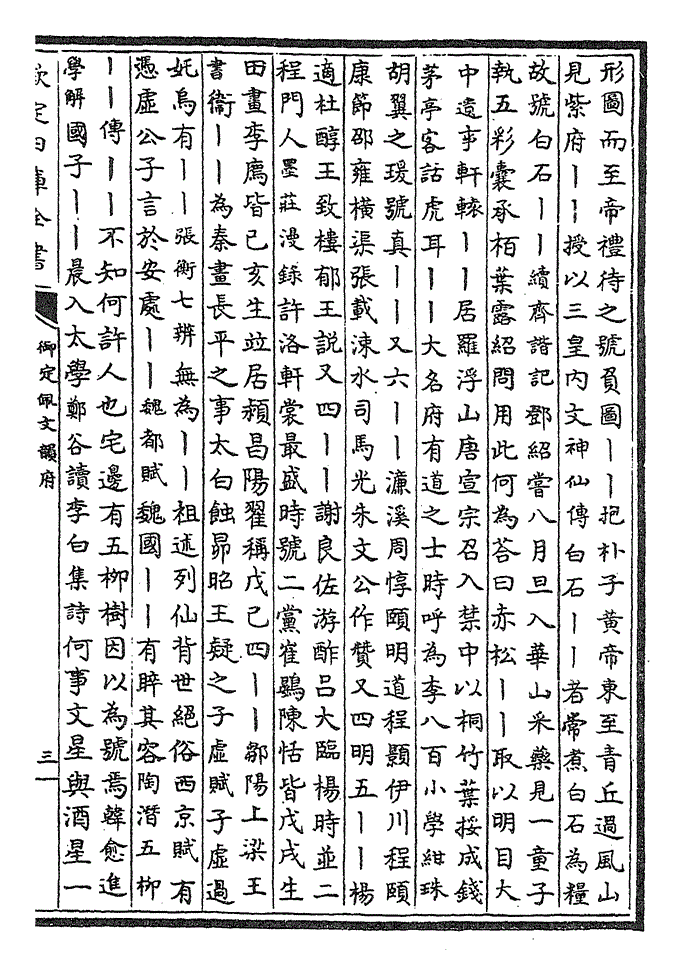 形圖而至帝禮待之號員圖丨丨抱朴子黄帝東至青丘過風山
見紫府丨丨授以三皇内文神仙傳白石丨丨者常煮白石為糧
故號白石丨丨續齊諧記鄧紹嘗八月旦入華山采藥見一童子
執五彩囊承栢葉露紹問用此何為荅曰赤松丨丨取以明目大
中遺事軒轅丨丨居羅浮山唐宣宗召入禁中以桐竹葉挼成錢
茅亭客話虎耳丨丨大名府有道之士時呼為李八百小學紺珠
胡翼之瑗號真丨丨又六丨丨濂溪周惇頤明道程顥伊川程頤
康節邵雍横渠張載涑水司馬光朱文公作贊又四明五丨丨楊
適杜醇王致樓郁王説又四丨丨謝良佐游酢吕大臨楊時並二
程門人墨莊漫錄許洛軒裳最盛時號二黨崔鷃陳恬皆戊戌生
田晝李廌皆己亥生竝居潁昌陽翟稱戊己四丨丨鄒陽上梁王
書衛丨丨為秦畫長平之事太白蝕昴昭王疑之子虛賦子虛過
妊烏有丨丨張衡七辨無為丨丨祖述列仙背世絶俗西京賦有
憑虛公子言於安處丨丨魏都賦魏國丨丨有睟其容陶潛五柳
丨丨傳丨丨不知何許人也宅邊有五柳樹因以為號焉韓愈進
學解國子丨丨晨入太學鄭谷讀李白集詩何事文星與酒星一
欽定四庫全書
御定佩文韻府
三